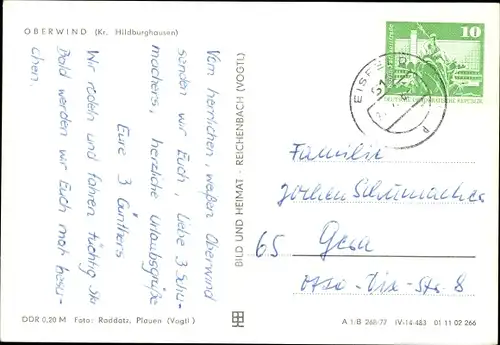 OBERWIND (Kr. Hildburghausen)
Vom herrlichen, weißen Oberwind
senden wir Euch, liebe 3 Schu-
machers, herzliche Urlaubsgrüße
Eure 3 Günthers
Wir rodeln und fahren tüchtig Ski
Bald werden wir Euch mal besu-
chen.
BILD UND HEIMAT · REICHENBACH (VOGTL)
10
DEUTSCHE DEMOKRATISCHE REPUBLIK
EISFELD
Familie
Jochen Schumacher
65 Gera
Otto-Dix-Str. 8
DDR 0,20 M Foto: Raddatz, Plauen (Vogtl)
A 1/B 268-77 IV-14-483 01 11 02 266